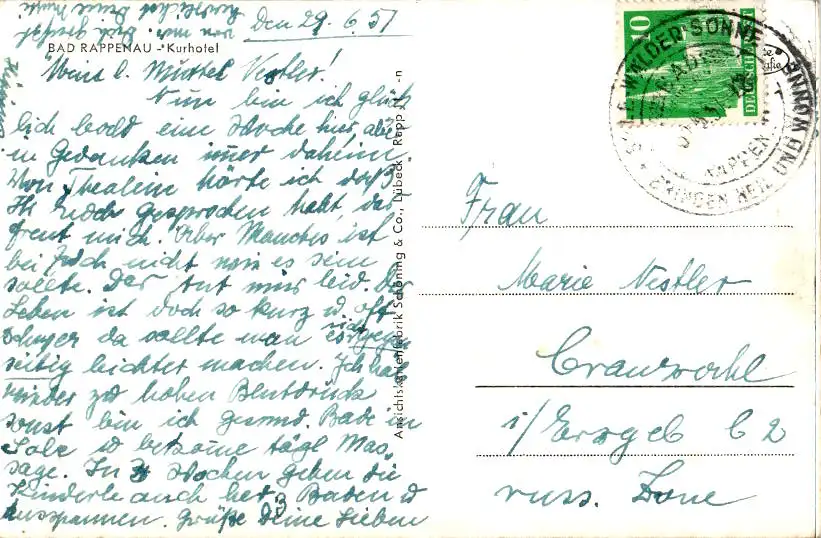 Den 29.6.51
BAD RAPPENAU - Kurhotel
Meine l. Muttel Nestler!
Nun bin ich glück
lich bald eine Woche hier, aber
in Gedanken immer daheim.
Von Thealein hörte ich daß
Ihr Euch gesprochen habt, das
freut mich. Aber Manches ist
bei Euch nicht wie es sein
sollte. Das tut mir leid. Das
Leben ist doch so kurz u oft
schwer da sollte man es sich gegen
seitig leichter machen. Ich habe
wieder zu hohen Blutdruck
sonst bin ich gesund. Bade in
Sole u bekomme tägl Mas
sage. In 3 Wochen gehen die
Kinderle auch her z Baden u
Ausspannen. Grüße Deine Lieben
von mir. Dich grüßt
herzlichst Deine
Ansichtskartenfabrik Schöning & Co., Lübeck
10
DEUTSCHE POST
WALDER SONNE
BRINGEN HEIL UND WONNE
Frau
Marie Nestler
Cranzahl
i/Erzgeb C 2
russ. Zone